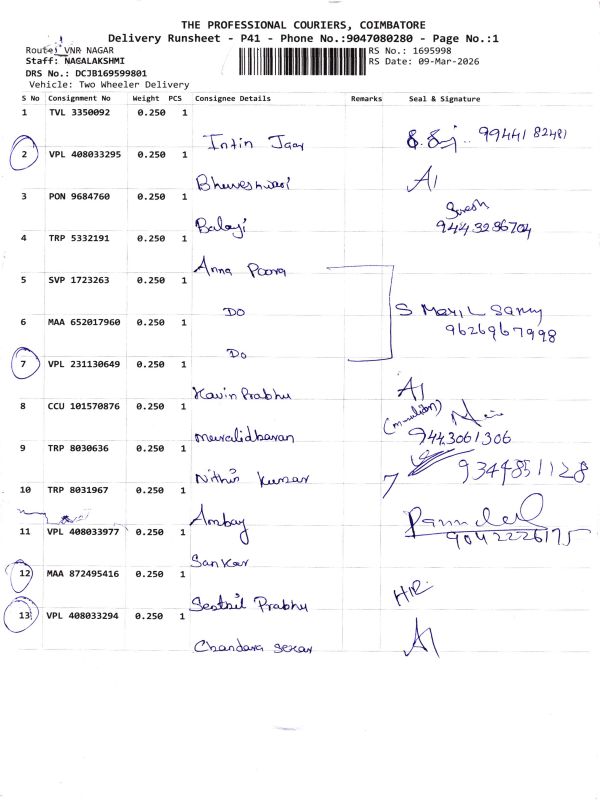 THE PROFESSIONAL COURIERS, COIMBATORE
Delivery Runsheet - P41 - Phone No.:9047080280 - Page No.:1
Route: VNR NAGAR
RS No.: 1695998
Staff: NAGALAKSHMI
RS Date: 09-Mar-2026
DRS No.: DCJB169599801
Vehicle: Two Wheeler Delivery
S No Consignment No Weight PCS Consignee Details Remarks Seal & Signature
1 TVL 3350092 0.250 1
Intin Jaay 99441 82481
2 VPL 408033295 0.250 1
Bhuveshwari A1
3 PON 9684760 0.250 1
Suresh
Balaji 9443286704
4 TRP 5332191 0.250 1
Anna Poorna
5 SVP 1723263 0.250 1
DO S Maril Samy
6 MAA 652017960 0.250 1
9626967998
Do
7 VPL 231130649 0.250 1
Kavin Prabhu A1
8 CCU 101570876 0.250 1
muralidharan 9443061306
9 TRP 8030636 0.250 1
Nithin Kumar 9344851128
10 TRP 8031967 0.250 1
Ambay
11 VPL 408033977 0.250 1
9042226175
Sankar
12 MAA 872495416 0.250 1
Senthil Prabhu
13 VPL 408033294 0.250 1
Chandara sekar A1